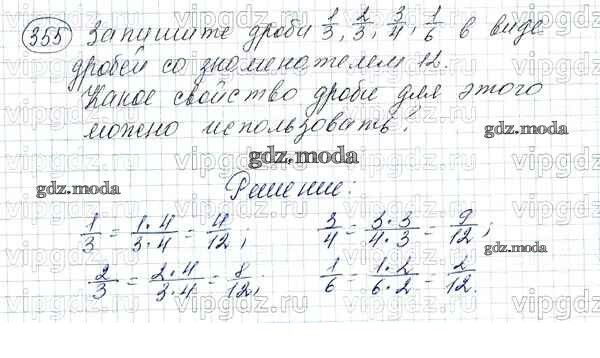 355 Запишите дроби 1/3, 2/3, 3/4, 1/6 в виде
дробей со знаменателем 12.
Какое свойство дроби для этого
можно использовать?
gdz.moda
gdz.moda
gdz.moda
Решение:
1/3 = 1·4/3·4 = 4/12; 3/4 = 3·3/4·3 = 9/12;
gdz.moda
2/3 = 2·4/3·4 = 8/12; 1/6 = 1·2/6·2 = 2/12.
gdz.moda
vipgdz.ru